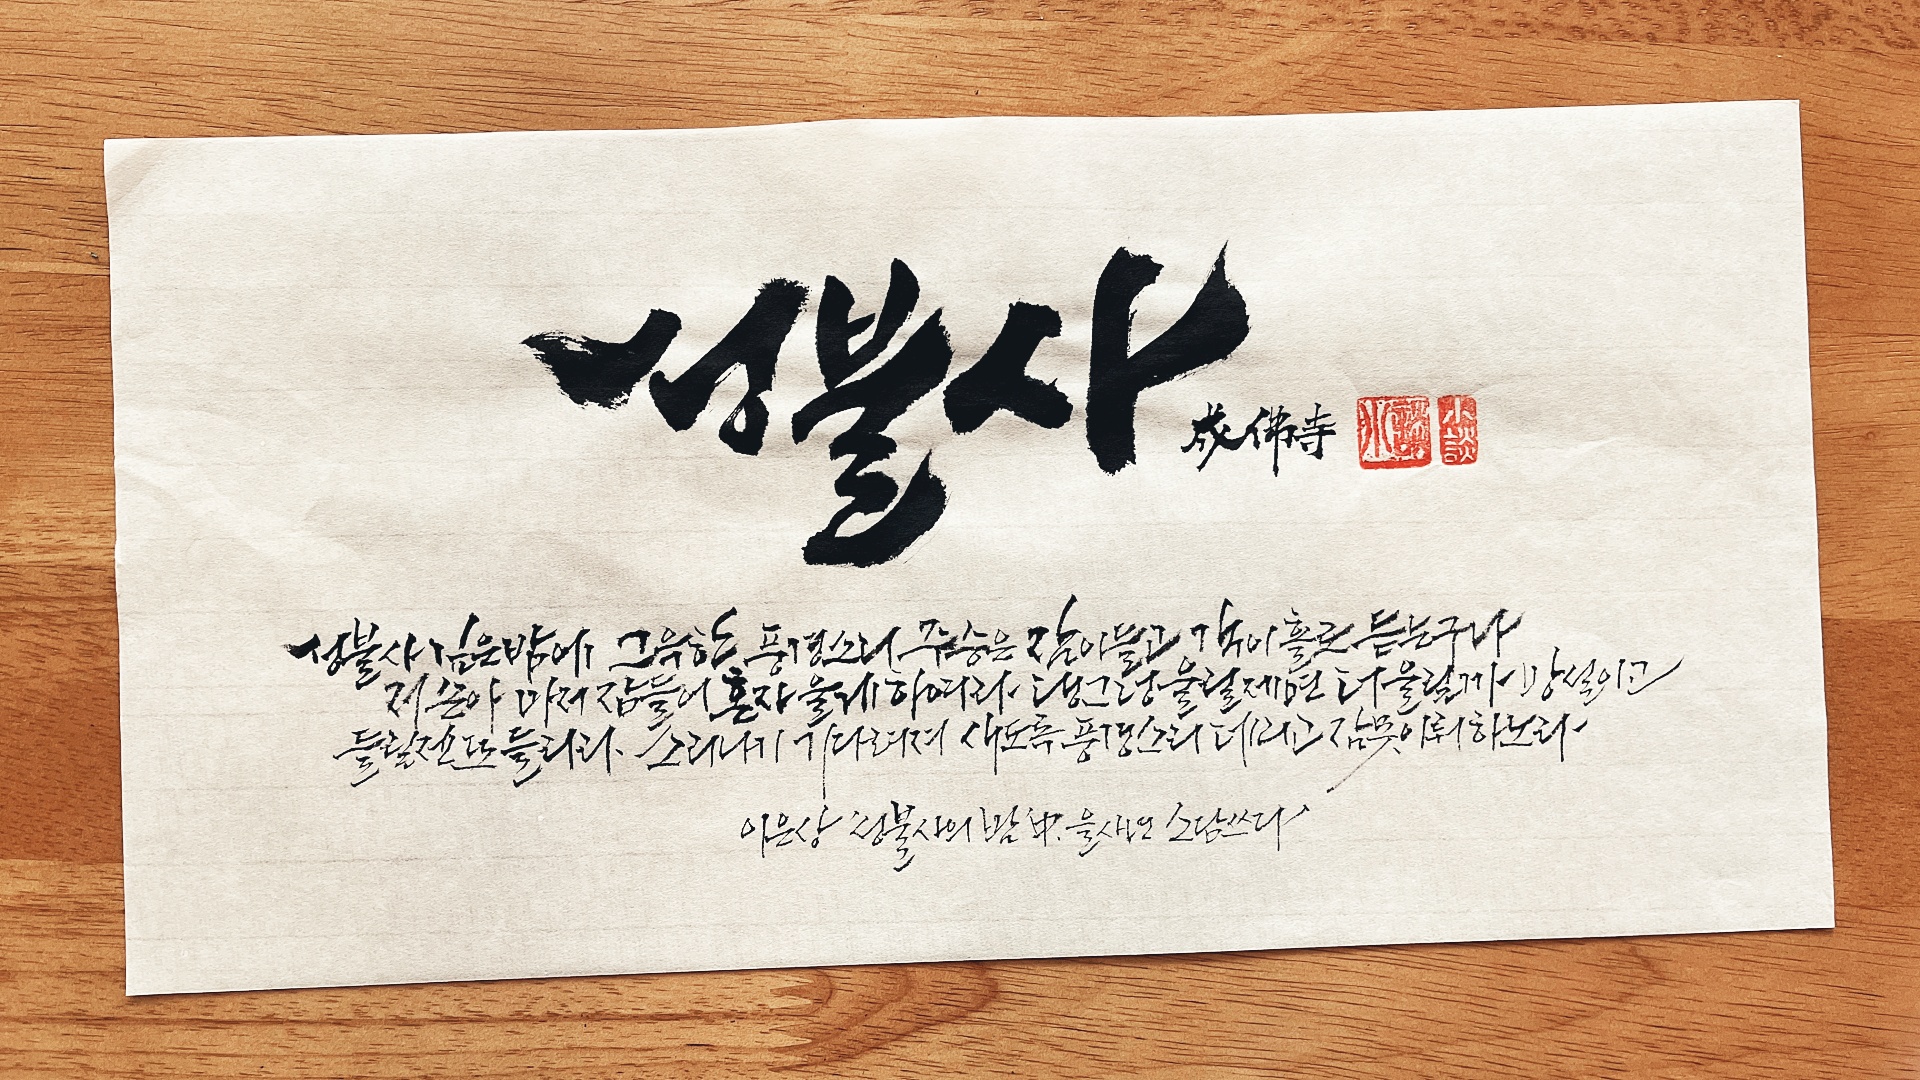 성불사
成佛寺
小談
성불사 깊은 밤에 그윽한 풍경소리 주승은 잠이 들고 객이 홀로 듣는구나
저 손아 마저 잠들어 혼자 울게 하여라. 댕그렁 울릴제면 더 울릴까 맘설이고
들릴젠 또 들리라. 소리나기 기다려져 새도록 풍경소리 데리고 잠못이뤄 하노라.
이은상 성불사의 밤 中. 을사년 소담쓰다